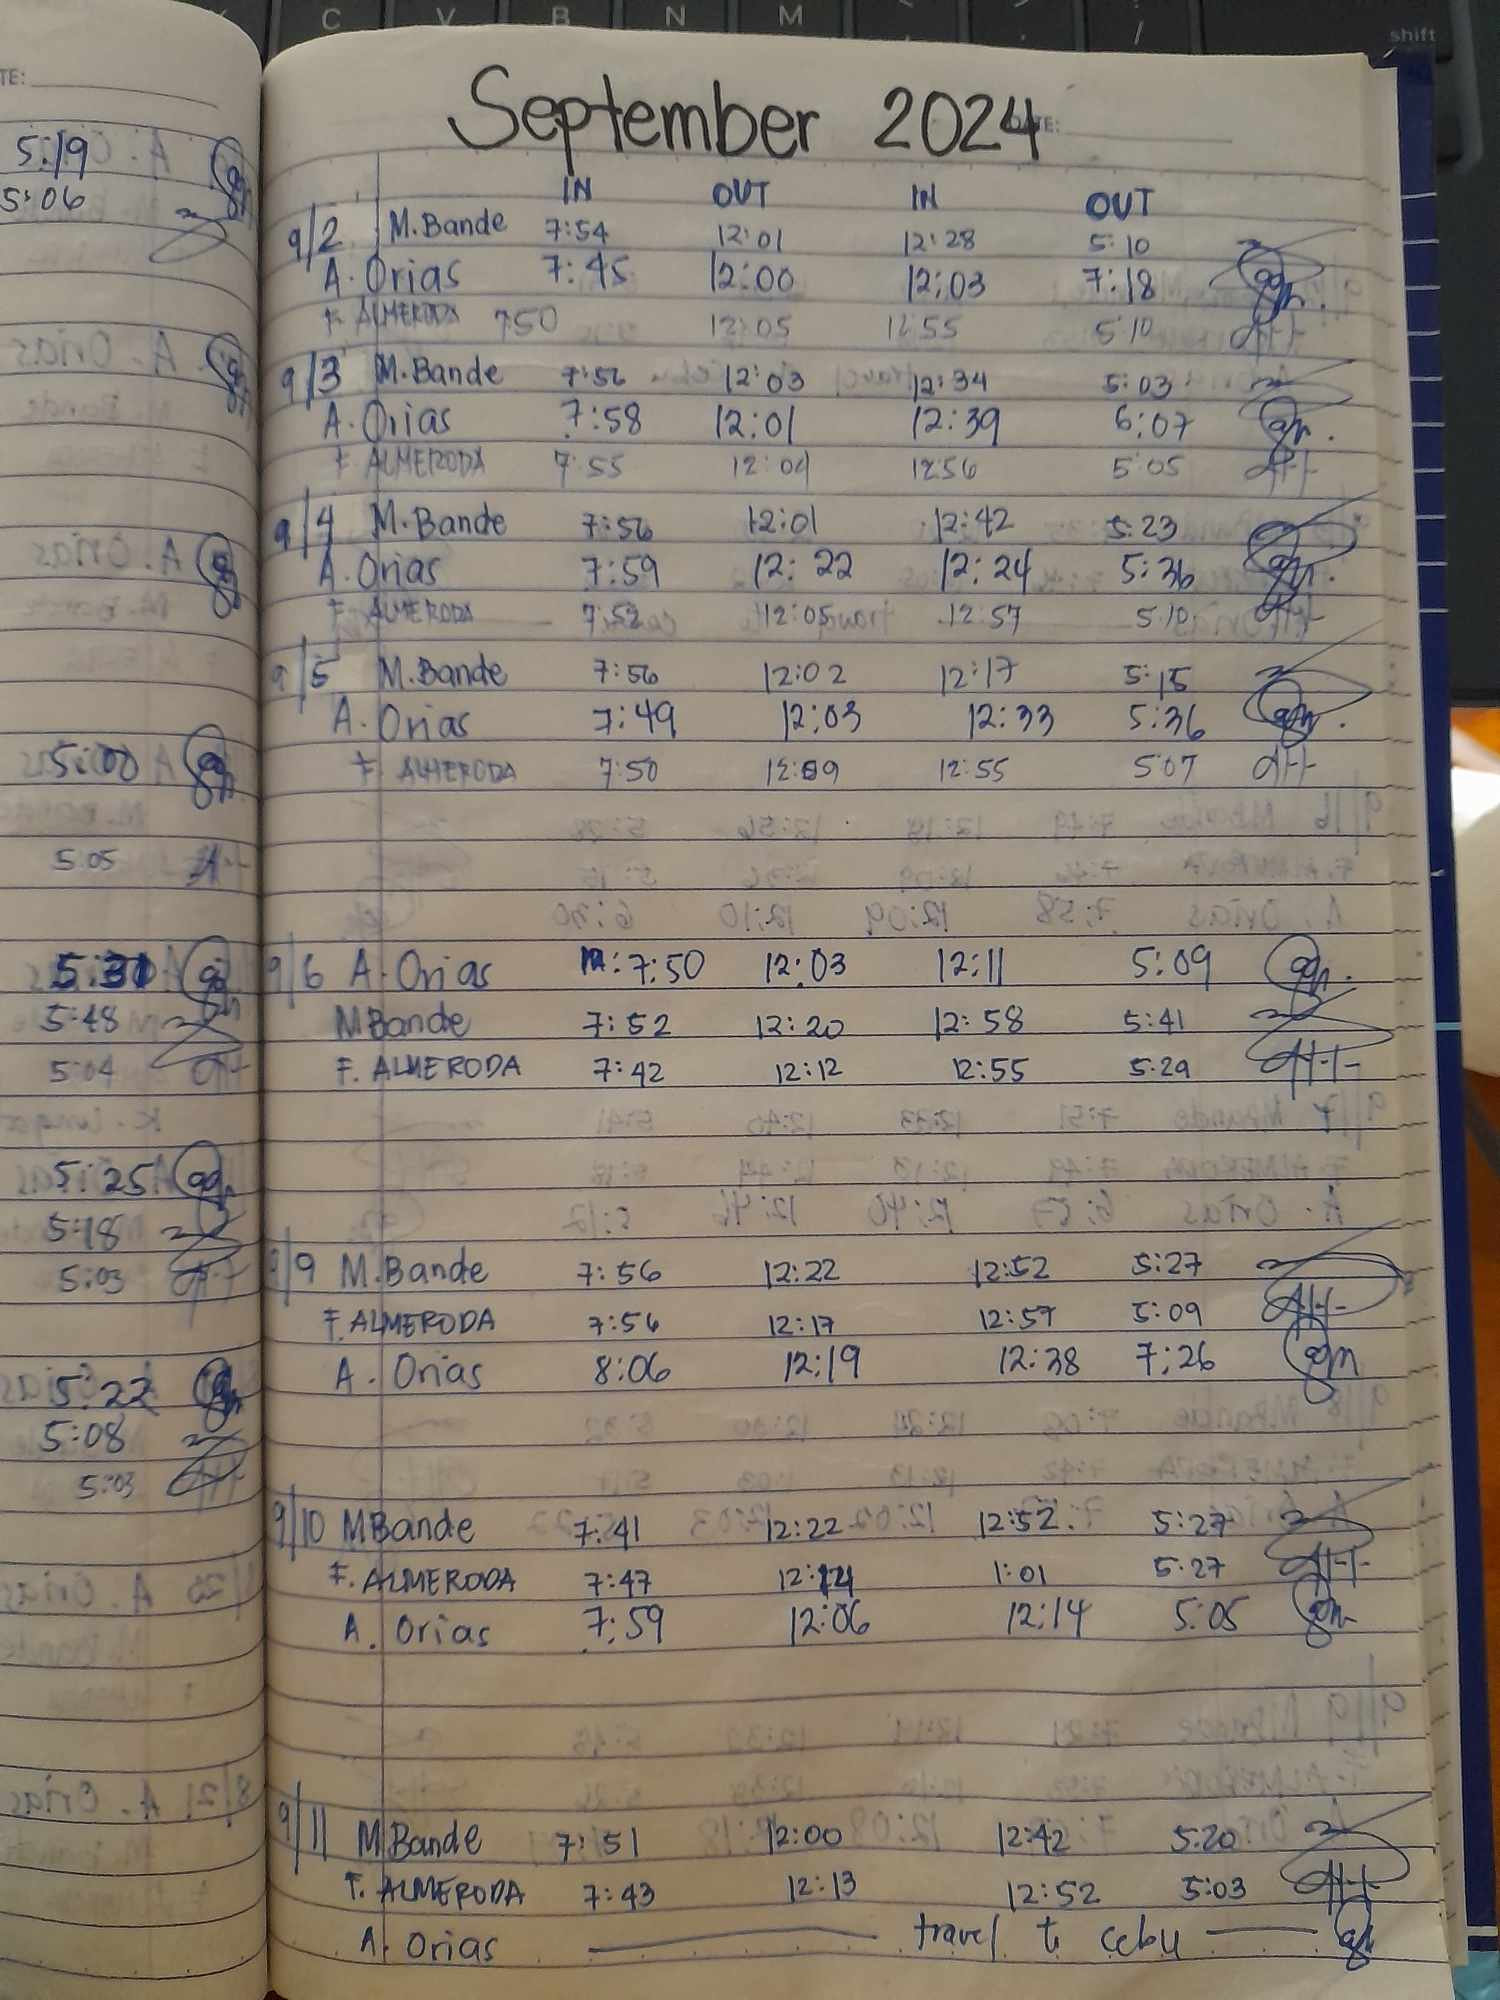 C V B N M
shift
TE:
5:19
5:06
5:00
5:05
5:31
5:48
5:04
5:25
5:18
5:03
5:22
5:08
5:03
September 2024
DATE:
IN OUT IN OUT
9/2 M.Bande 7:54 12:01 12:28 5:10
A. Orias 7:45 12:00 12:03 7:18
F. ALMERODA 7:50 12:05 12:55 5:10
9/3 M.Bande 7:56 12:03 12:34 5:03
A. Orias 7:58 12:01 12:39 6:07
F. ALMERODA 7:55 12:04 12:56 5:05
9/4 M.Bande 7:56 12:01 12:42 5:23
A. Orias 7:59 12:22 12:24 5:36
F. ALMERODA 7:52 12:05 12:57 5:10
9/5 M.Bande 7:56 12:02 12:17 5:15
A. Orias 7:49 12:03 12:33 5:36
F. ALMERODA 7:50 12:09 12:55 5:07
9/6 A. Orias 7:50 12:03 12:11 5:09
MBande 7:52 12:20 12:58 5:41
F. ALMERODA 7:42 12:12 12:55 5:29
9/9 M.Bande 7:56 12:22 12:52 5:27
F. ALMERODA 7:56 12:17 12:57 5:09
A. Orias 8:06 12:19 12:38 7:26
9/10 MBande 7:41 12:22 12:52 5:27
F. ALMERODA 7:47 1:01 5:27
A. Orias 7:59 12:06 12:14 5:05
9/11 MBande 7:51 12:00 12:42 5:20
F. ALMERODA 7:43 12:13 12:52 5:03
A. Orias travel to cebu